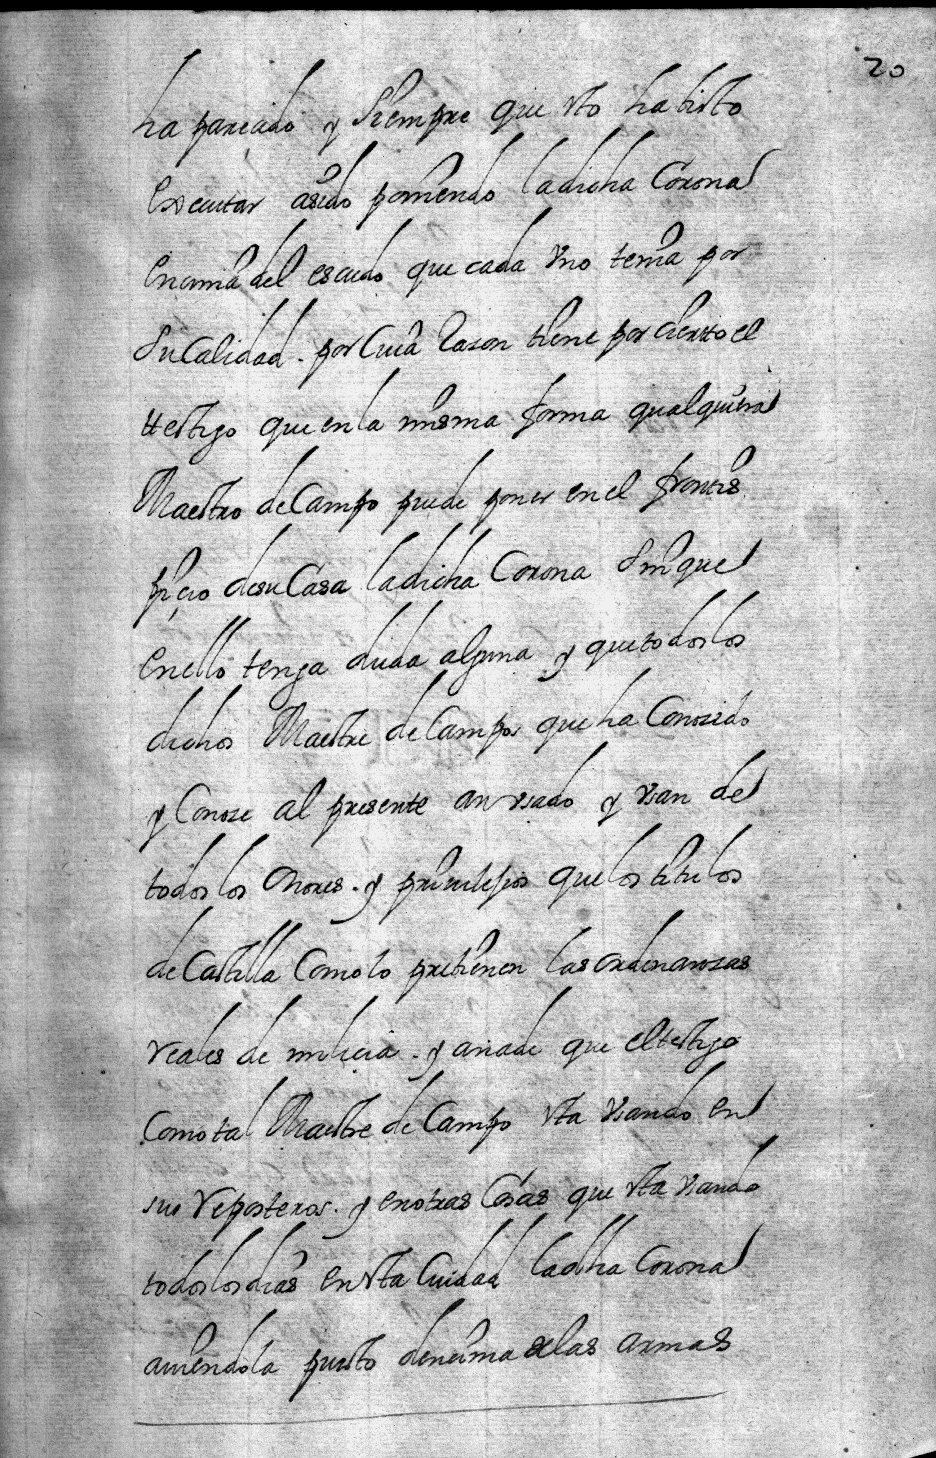 20
ha pareado y Siempre que esto ha bisto
Executar asido poniendo ladicha Corona
Encima del escudo que cada Uno tenia por
Su Calidad. por Cuia Razon tiene por Cierto el
ttestigo que en la misma forma qualquiera
Maestro de Campo puede poner en el frontis
picio desu Casa ladicha Corona Sin que
en ello tenga duda alguna y que todos los
dichos Maestre de Campos que ha Conosido
y Conose al presente an usado y usan de
todos los Onores. y previlejios que los titulos
de Castilla Como lo previenen las ordenansas
reales de milicia. y añade que el testigo
Como tal Maestre de Campo esta usando en
sus reposteros. y en otras Cosas que esta usando
todos los dias en esta Ciudad la dha Corona
aviendola puesto de ensima de las armas